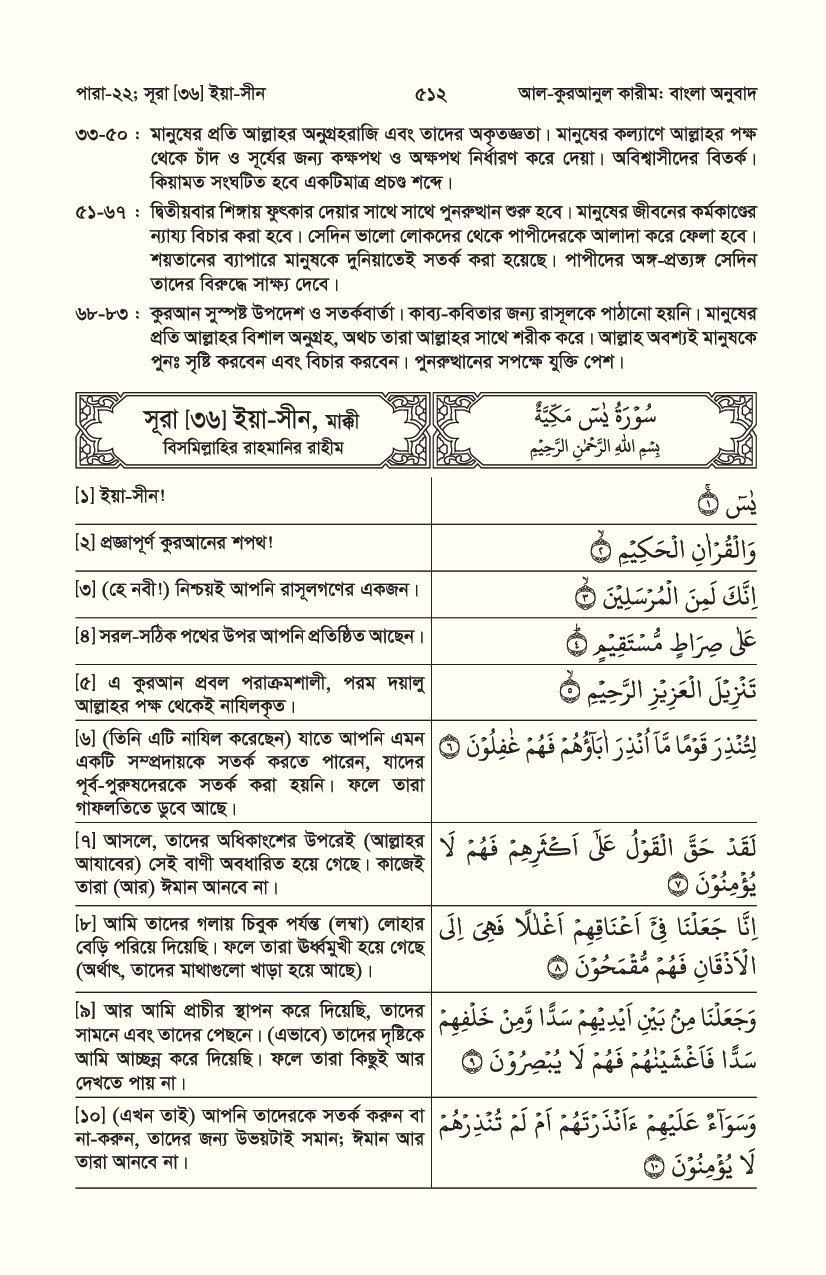 পারা-২২; সূরা [৩৬] ইয়া-সীন ৫১২ আল-কুরআনুল কারীম: বাংলা অনুবাদ
৩৩-৫০ : মানুষের প্রতি আল্লাহর অনুগ্রহরাজি এবং তাদের অকৃতজ্ঞতা। মানুষের কল্যাণে আল্লাহর পক্ষ
থেকে চাঁদ ও সূর্যের জন্য কক্ষপথ ও অক্ষপথ নির্ধারণ করে দেয়া। অবিশ্বাসীদের বিতর্ক।
কিয়ামত সংঘটিত হবে একটিমাত্র প্রচণ্ড শব্দে।
৫১-৬৭ : দ্বিতীয়বার শিঙ্গায় ফুৎকার দেয়ার সাথে সাথে পুনরুত্থান শুরু হবে। মানুষের জীবনের কর্মকাণ্ডের
ন্যায্য বিচার করা হবে। সেদিন ভালো লোকদের থেকে পাপীদেরকে আলাদা করে ফেলা হবে।
শয়তানের ব্যাপারে মানুষকে দুনিয়াতেই সতর্ক করা হয়েছে। পাপীদের অঙ্গ-প্রত্যঙ্গ সেদিন
তাদের বিরুদ্ধে সাক্ষ্য দেবে।
৬৮-৮৩ : কুরআন সুস্পষ্ট উপদেশ ও সতর্কবার্তা। কাব্য-কবিতার জন্য রাসূলকে পাঠানো হয়নি। মানুষের
প্রতি আল্লাহর বিশাল অনুগ্রহ, অথচ তারা আল্লাহর সাথে শরীক করে। আল্লাহ অবশ্যই মানুষকে
পুনঃ সৃষ্টি করবেন এবং বিচার করবেন। পুনরুত্থানের সপক্ষে যুক্তি পেশ।
সূরা [৩৬] ইয়া-সীন, মাক্কী
বিসমিল্লাহির রাহমানির রাহীম
سُوْرَةُ يٰسٓ مَكِّيَّةٌ
بِسْمِ اللهِ الرَّحْمٰنِ الرَّحِيْمِ
[১] ইয়া-সীন!
يٰسٓ ۚ‏ ﴿١﴾
[২] প্রজ্ঞাপূর্ণ কুরআনের শপথ!
وَالْقُرْاٰنِ الْحَكِيْمِ ۙ‏ ﴿٢﴾
[৩] (হে নবী!) নিশ্চয়ই আপনি রাসূলগণের একজন।
اِنَّكَ لَمِنَ الْمُرْسَلِيْنَ ۙ‏ ﴿٣﴾
[৪] সরল-সঠিক পথের উপর আপনি প্রতিষ্ঠিত আছেন।
عَلٰى صِرَاطٍ مُّسْتَقِيْمٍ ؕ‏ ﴿٤﴾
[৫] এ কুরআন প্রবল পরাক্রমশালী, পরম দয়ালু
আল্লাহর পক্ষ থেকেই নাযিলকৃত।
تَنْزِيْلَ الْعَزِيْزِ الرَّحِيْمِ ۙ‏ ﴿٥﴾
[৬] (তিনি এটি নাযিল করেছেন) যাতে আপনি এমন
একটি সম্প্রদায়কে সতর্ক করতে পারেন, যাদের
পূর্ব-পুরুষদেরকে সতর্ক করা হয়নি। ফলে তারা
গাফলতিতে ডুবে আছে।
لِتُنْذِرَ قَوْمًا مَّآ اُنْذِرَ اٰبَآؤُهُمْ فَهُمْ غٰفِلُوْنَ ﴿٦﴾
[৭] আসলে, তাদের অধিকাংশের উপরেই (আল্লাহর
আযাবের) সেই বাণী অবধারিত হয়ে গেছে। কাজেই
তারা (আর) ঈমান আনবে না।
لَقَدْ حَقَّ الْقَوْلُ عَلٰٓى اَكْثَرِهِمْ فَهُمْ لَا
يُؤْمِنُوْنَ ﴿٧﴾
[৮] আমি তাদের গলায় চিবুক পর্যন্ত (লম্বা) লোহার
বেড়ি পরিয়ে দিয়েছি। ফলে তারা ঊর্ধ্বমুখী হয়ে গেছে
(অর্থাৎ, তাদের মাথাগুলো খাড়া হয়ে আছে)।
اِنَّا جَعَلْنَا فِيْٓ اَعْنَاقِهِمْ اَغْلٰلًا فَهِىَ اِلَى
الْاَذْقَانِ فَهُمْ مُّقْمَحُوْنَ ﴿٨﴾
[৯] আর আমি প্রাচীর স্থাপন করে দিয়েছি, তাদের
সামনে এবং তাদের পেছনে। (এভাবে) তাদের দৃষ্টিকে
আমি আচ্ছন্ন করে দিয়েছি। ফলে তারা কিছুই আর
দেখতে পায় না।
وَجَعَلْنَا مِنْۢ بَيْنِ اَيْدِيْهِمْ سَدًّا وَّمِنْ خَلْفِهِمْ
سَدًّا فَاَغْشَيْنٰهُمْ فَهُمْ لَا يُبْصِرُوْنَ ﴿٩﴾
[১০] (এখন তাই) আপনি তাদেরকে সতর্ক করুন বা
না-করুন, তাদের জন্য উভয়টাই সমান; ঈমান আর
তারা আনবে না।
وَسَوَآءٌ عَلَيْهِمْ ءَاَنْذَرْتَهُمْ اَمْ لَمْ تُنْذِرْهُمْ
لَا يُؤْمِنُوْنَ ﴿١٠﴾